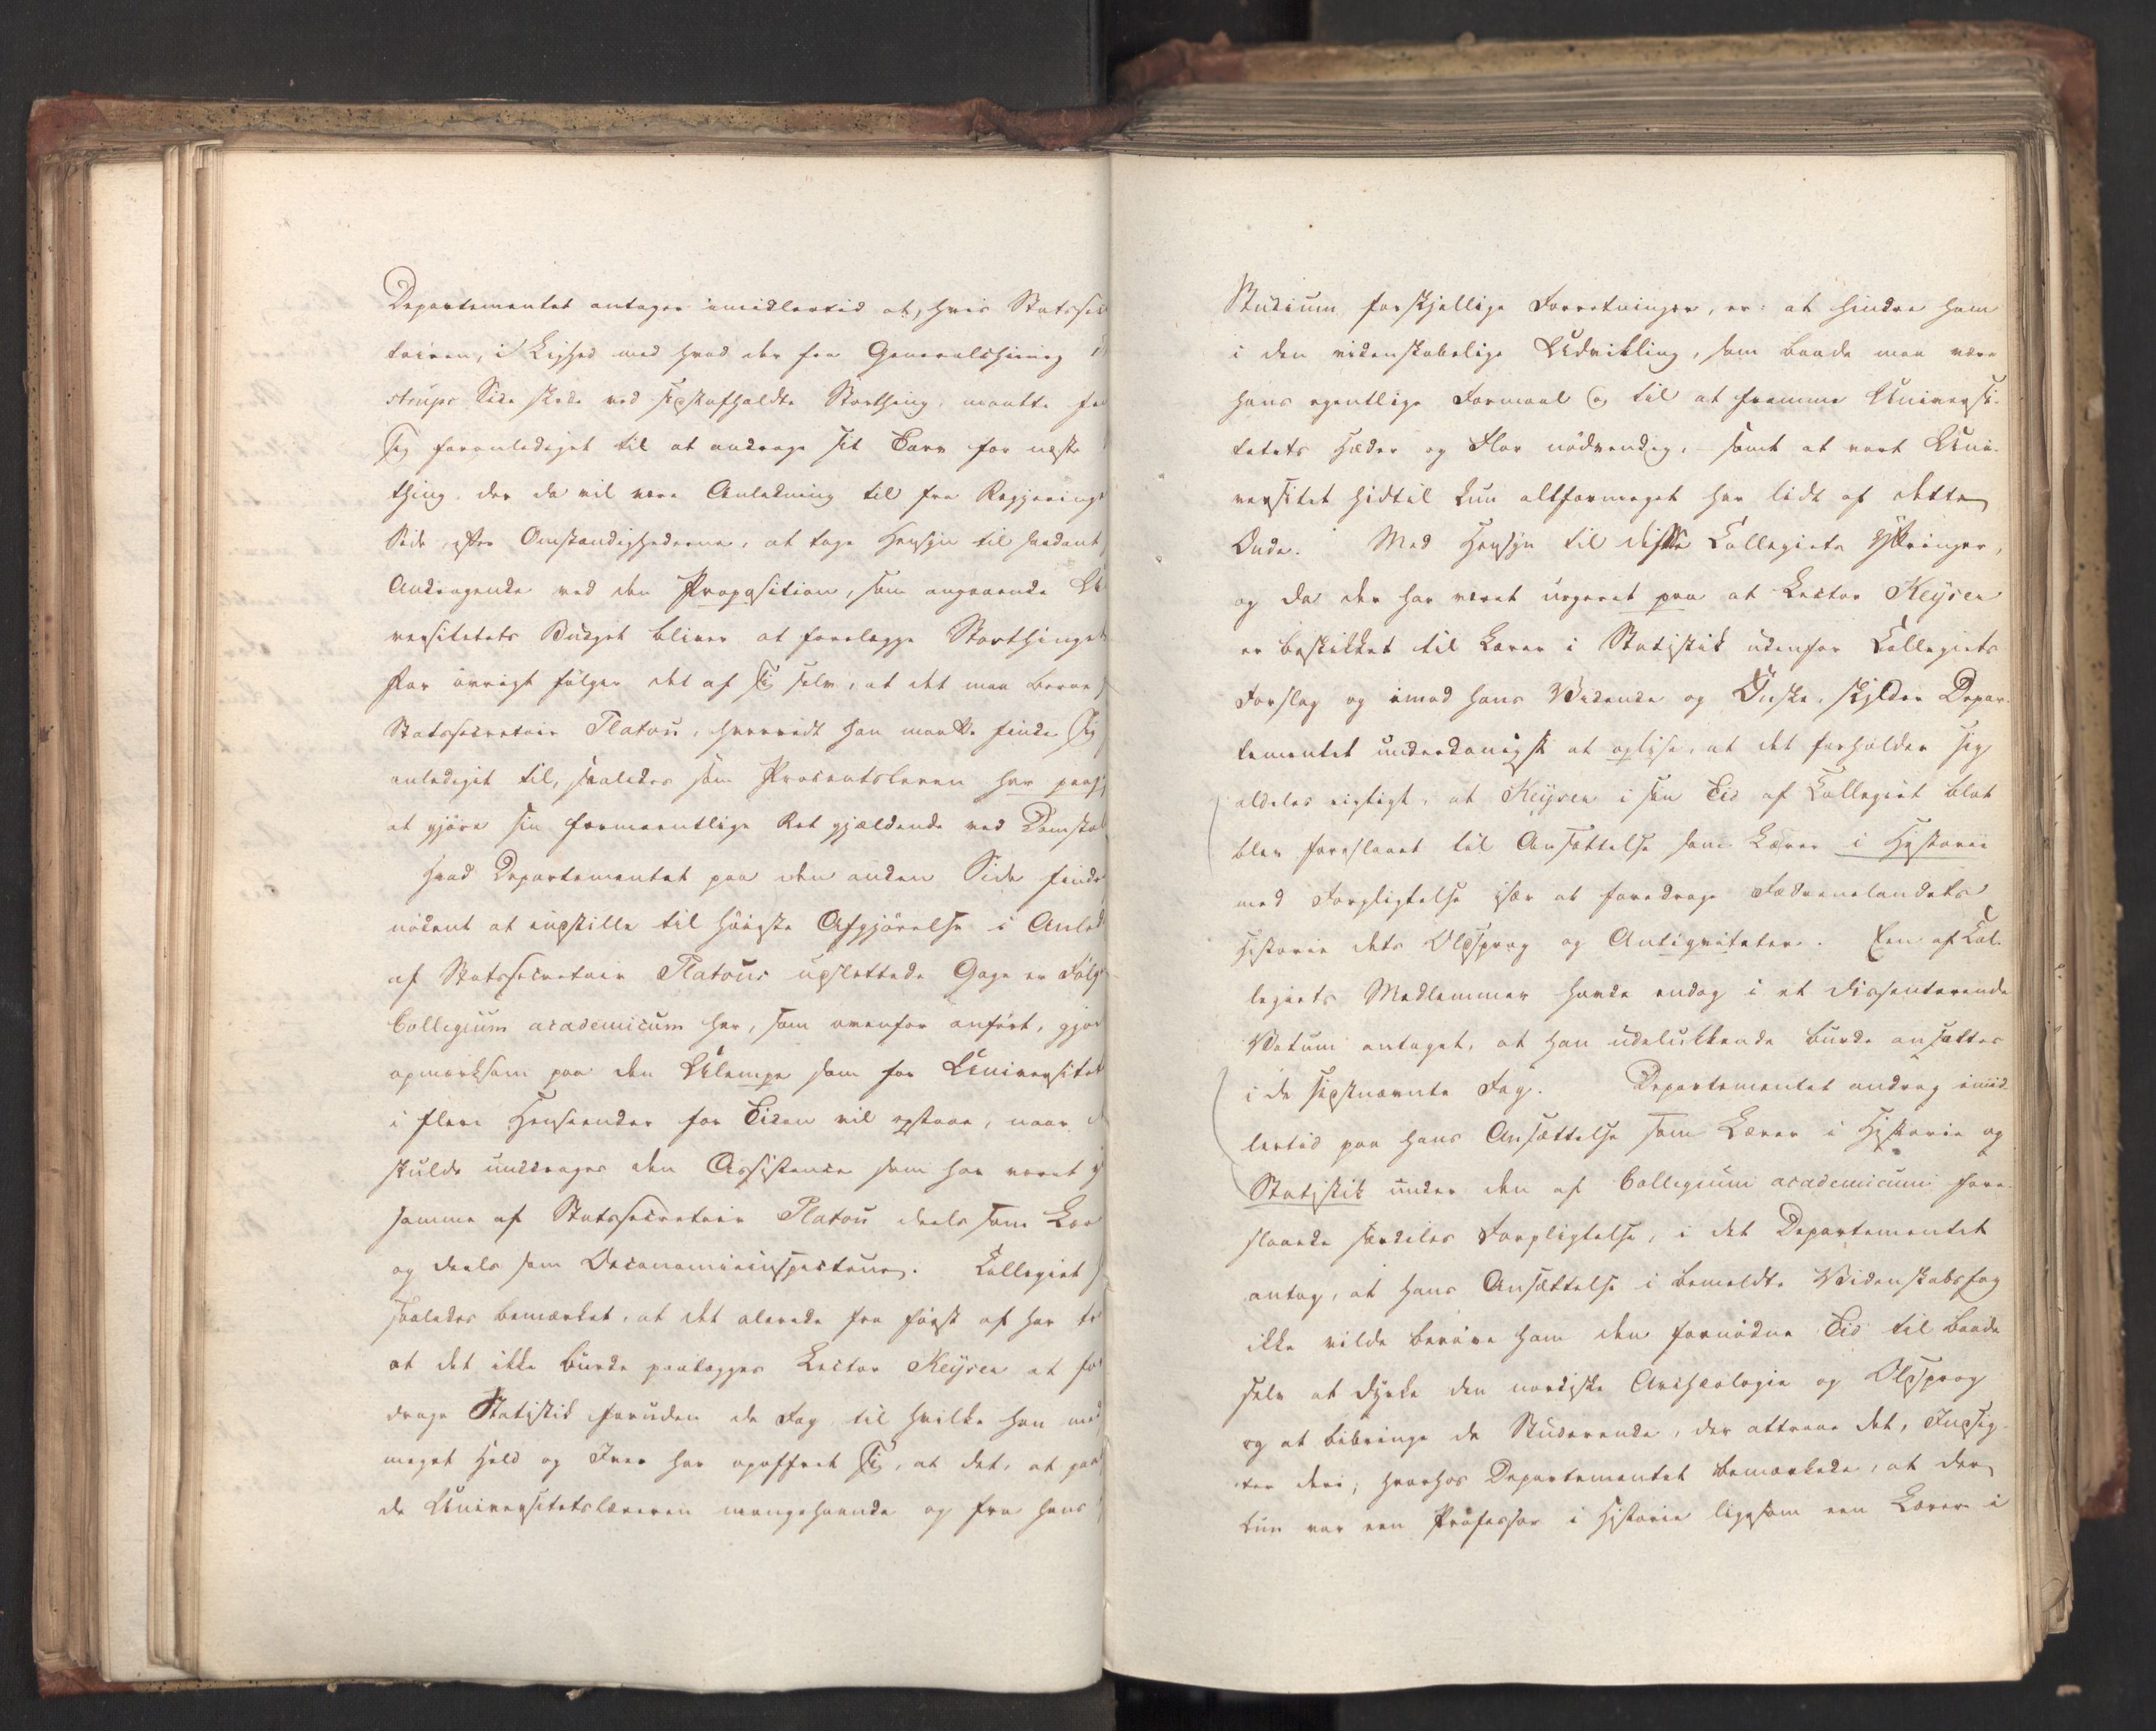 Departementet antager imidlertid at, hvis Statssec
tairen, i Lighed med hvad der fra Generalchirurg
strups Side skede ved sidstafholdte Storthing, maatte fin
sig foranlediget til at andrage sit Tarv for næste
thing, der da vil være Anledning til fra Regjerings
Side, efter Omstændighederne, at tage Hensyn til saadant
Andragende ved den Proposition, som angaaende Uni
versitetets Budget bliver at forelægge Storthinget
For øvrigt følger det af sig selv, at det maa beroe
Statssecretair Platou, hvorvidt han maatte finde sig
anlediget til, saaledes som Procentsloven har paa
at gjøre sin formeentlige Ret gjældende ved Domstol
Hvad Departementet paa den anden Side finder
nødent at indstille til høieste Afgjørelse i Anled
af Statssecretair Platous opslettede Gage er Følg
Collegium academicum har, som ovenfor anført, gjor
opmærksom paa den Ulempe som for Universitet
i flere Henseender for Tiden vil opstaae, naar
skulde unddrages den Assistence som har været
samme af Statssecretair Platou deels som Lær
og deels som Oeconomieinspecteur. Collegiet
saaledes bemærket, at det allerede fra først af har
at det ikke burde paalægges Lector Keyser at fo
drage Statistik foruden de Fag til hvilke han med
meget Held og Iver har opoffret sig, at det, at paa
de Universitetslæreren mangehaande og fra hans
Studium forskjellige Forretninger, er: at hindre ham
i den videnskabelige Udvikling, som baade maa være
hans egentlige Formaal og til at fremme Universi-
tetets Hæder og Flor nødvendig, samt at vort Uni-
versitet hidtil kun altformeget har lidt af dette
Onde. Med Hensyn til disse Collegiets Yttringer,
og da der har været urgeret paa at Lector Keyser
er beskikket til Lærer i Statistik udenfor Collegiets
Forslag og imod hans Vidende og Ønske, skylder Depar-
tementet underdanigst at oplyse, at det forholder sig
aldeles rigtigt, at Keyser i sin Tid af Collegiet blot
blev foreslaaet til Ansættelse som Lærer i Historie
med Forpligtelse især at foredrage Fædrenelandets
Historie dets Oldsprog og Antiqviteter. Een af Col-
legiets Medlemmer havde endog i et dissenterende
Votum antaget, at han udelukkende burde ansættes
i de sidstnævnte Fag. Departementet androg imid-
lertid paa hans Ansættelse som Lærer i Historie og
Statistik under den af Collegium academicum fore-
slaaede særdeles Forpligtelse, i det Departementet
antog, at hans Ansættelse i bemeldte Videnskabsfag
ikke vilde berøve ham den fornødne Tid til baade
selv at dyrke den nordiske Archæologie og Oldsprog
og at bibringe de Studerende, der attraae det, Indsig-
ter deri; hvorhos Departementet bemærkede, at der
kun var een Professor i Historie ligesom een Lærer i